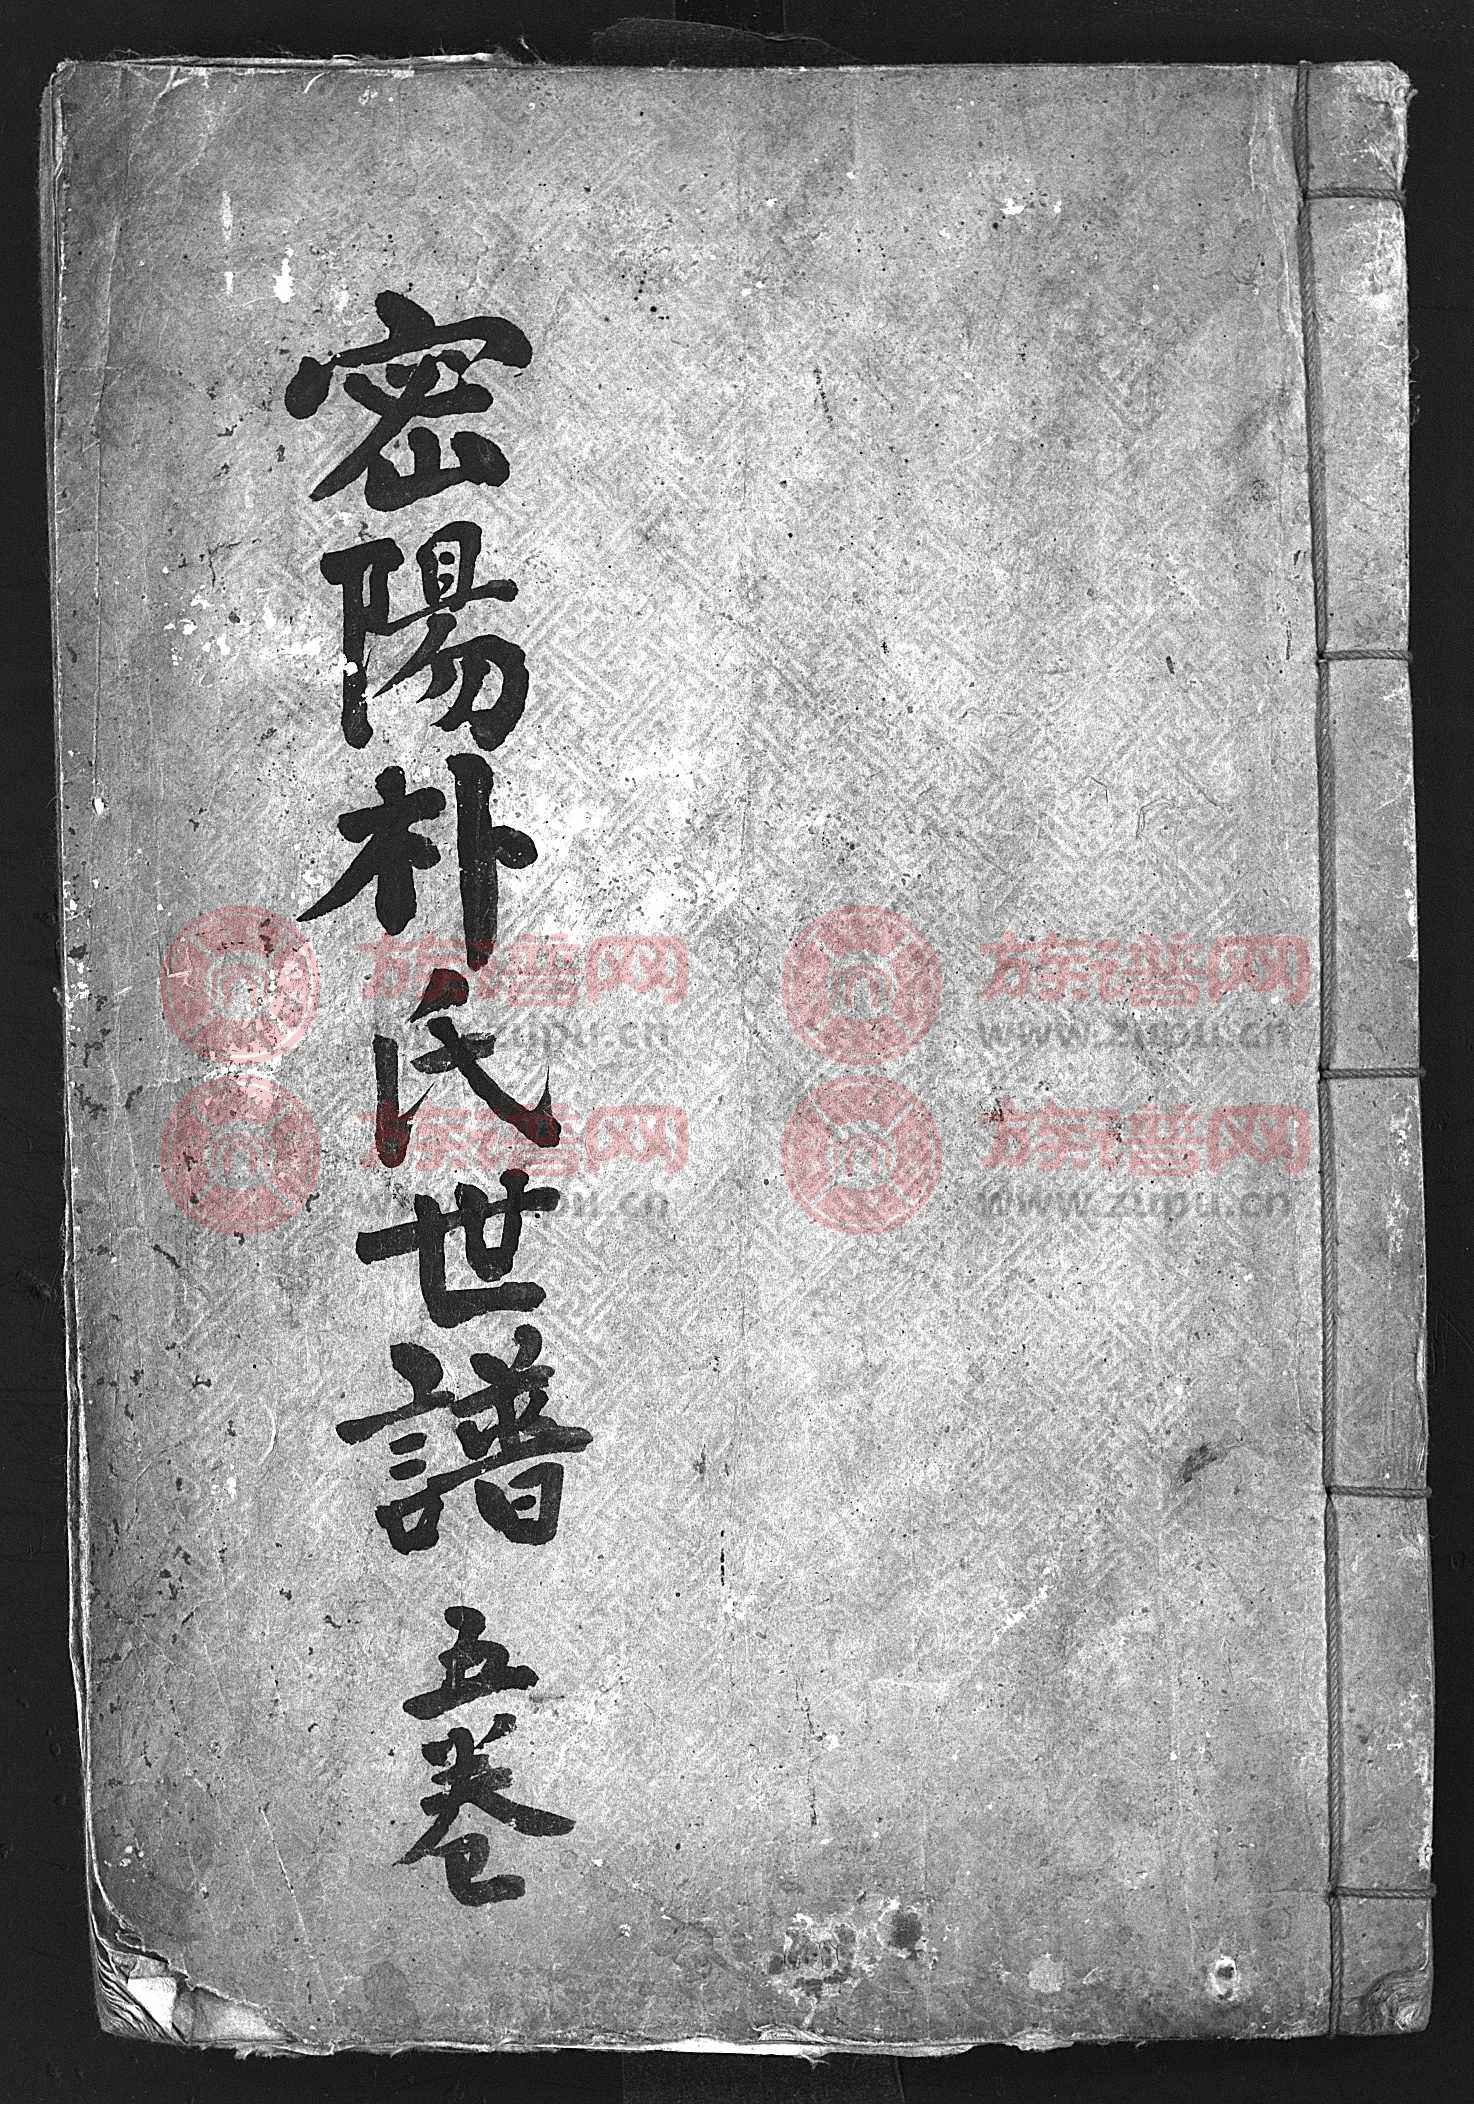 密陽朴氏世譜 五卷
族谱网 www.zupu.cn
族谱网 www.zupu.cn
族谱网 www.zupu.cn
族谱网 www.zupu.cn